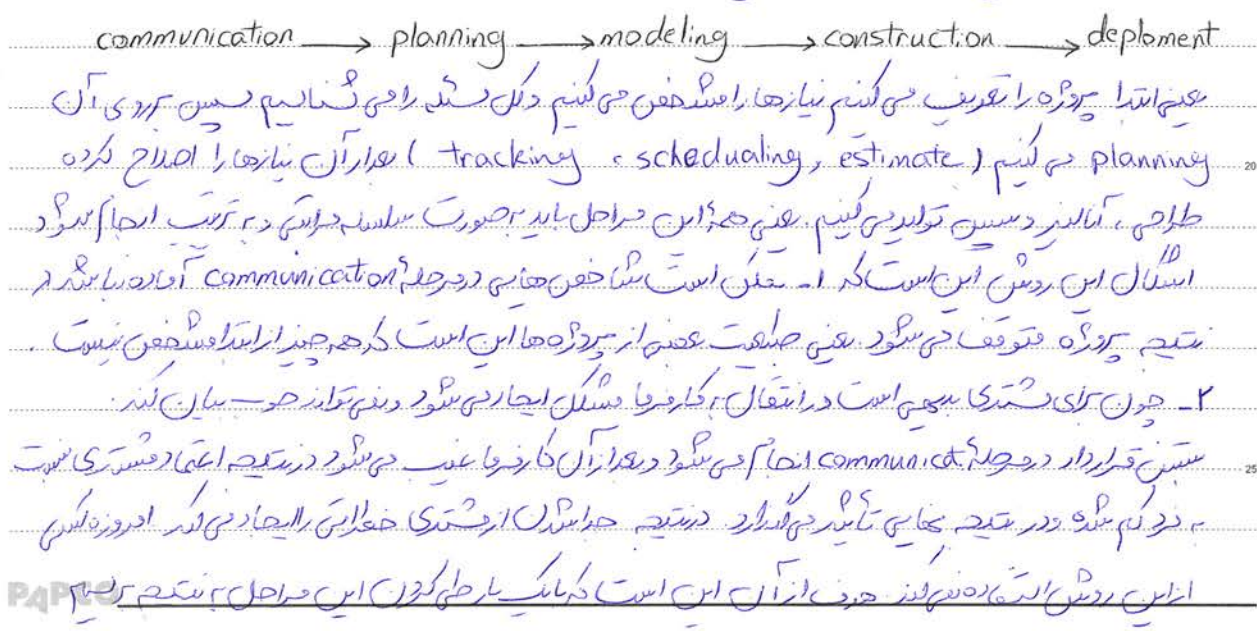 communication → planning → modeling → construction → deploment
یعنی ابتدا پروژه را تعریف می کنیم نیازها را مشخص می کنیم و کل مسئله را می شناسیم سپس بر روی آن
planning می کنیم ( tracking ، schedualing ، estimate ) بعد از آن نیازها را اصلاح کرده
20
طراحی ، آنالیز و سپس تولید می کنیم. یعنی همهٔ این مراحل باید به صورت سلسله مراتبی و به ترتیب انجام شود
اشکال این روش این است که ۱- ممکن است شاخص هایی در مرحلهٔ communication آماده نباشد در
نتیجه پروژه متوقف می شود. یعنی طبیعت بعضی از پروژه ها این است که همه چیز از ابتدا مشخص نیست .
۲- چون برای مشتری بدیهی است در انتقال به کارفرما مشکل ایجاد می شود و نمی تواند خوب بیان کند.
بستن قرارداد در مرحلهٔ communicat انجام می شود و بعد از آن کارفرما غیب می شود در نتیجه اعتماد مشتری نسبت
25
به فرد کم شده و در نتیجه نهایی تأثیر می گذارد. در نتیجه جدا شدن از مشتری خطراتی را ایجاد می کند امروزه کسی
از این روش استفاده نمی کند. هدف از آن این است که با یک بار طی کردن این مراحل به نتیجه برسیم
PAPCO